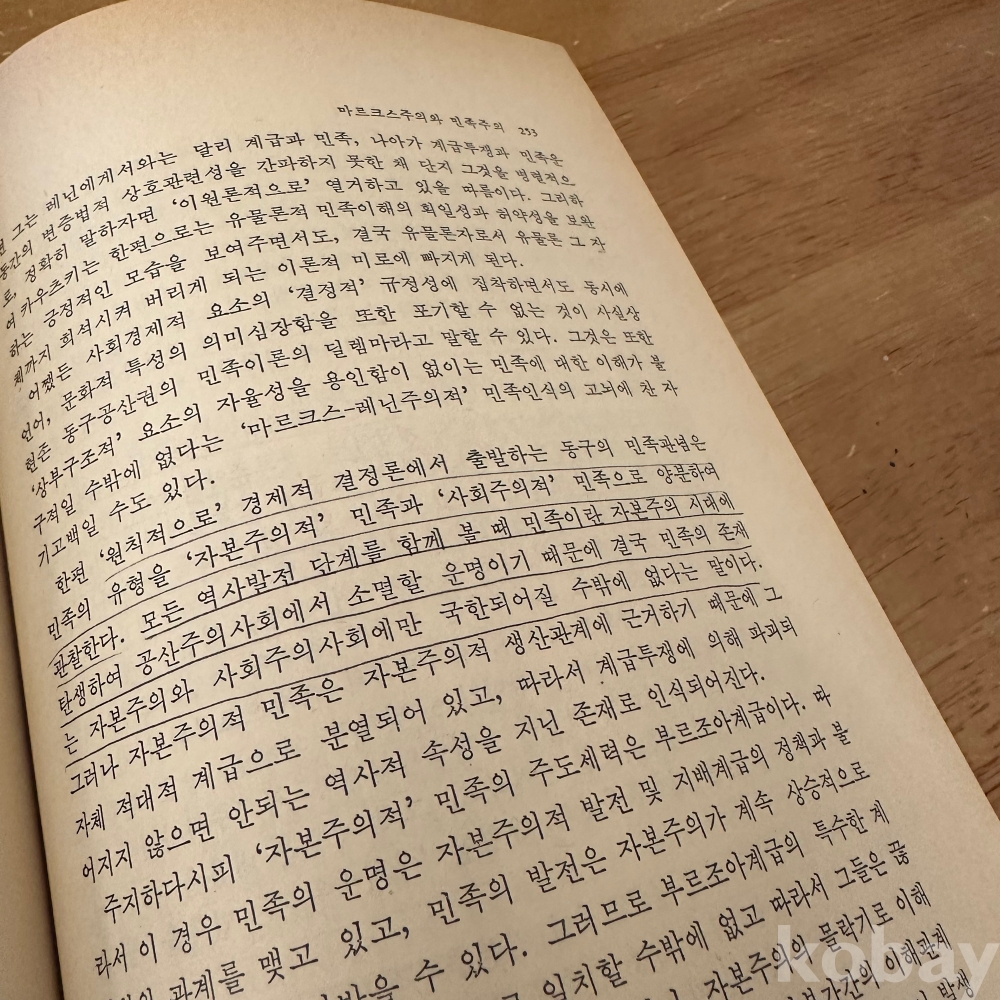 마르크스주의와 민족주의 253
그는 레닌에게서와는 달리 계급과 민족, 나아가 계급투쟁과 민족운
동간의 변증법적 상호관련성을 간파하지 못한 채 단지 그것을 병렬적으
로, 정확히 말하자면 ‘이원론적으로’ 열거하고 있을 따름이다. 그리하
여 카우츠키는 한편으로는 유물론적 민족이해의 획일성과 허약성을 보완
하는 긍정적인 모습을 보여주면서도, 결국 유물론자로서 유물론 그 자
체까지 희석시켜 버리게 되는 이론적 미로에 빠지게 된다.
어쨌든 사회경제적 요소의 ‘결정적’ 규정성에 집착하면서도 동시에
언어, 문화적 특성의 의미심장함을 또한 포기할 수 없는 것이 사실상
현존 동구공산권의 민족이론의 딜렘마라고 말할 수 있다. 그것은 또한
‘상부구조적’ 요소의 자율성을 용인함이 없이는 민족에 대한 이해가 불
구적일 수밖에 없다는 ‘마르크스-레닌주의적’ 민족인식의 고뇌에 찬 자
기고백일 수도 있다.
한편 ‘원칙적으로’ 경제적 결정론에서 출발하는 동구의 민족관념은
민족의 유형을 ‘자본주의적’ 민족과 ‘사회주의적’ 민족으로 양분하여
관찰한다. 모든 역사발전 단계를 함께 볼 때 민족이란 자본주의 시대에
탄생하여 공산주의사회에서 소멸할 운명이기 때문에 결국 민족의 존재
는 자본주의와 사회주의사회에만 국한되어질 수밖에 없다는 말이다.
그러나 자본주의적 민족은 자본주의적 생산관계에 근거하기 때문에 그
자체 적대적 계급으로 분열되어 있고, 따라서 계급투쟁에 의해 파괴되
어지지 않으면 안되는 역사적 속성을 지닌 존재로 인식되어진다.
주지하다시피 ‘자본주의적’ 민족의 주도세력은 부르조아계급이다. 따
라서 이 경우 민족의 운명은 자본주의적 발전 및 지배계급의 정책과 불
관계를 맺고 있고, 민족의 발전은 자본주의가 계속 상승적으로
수 있다. 그러므로 부르조아계급의 특수한 계
일치할 수밖에 없고 따라서 그들은 끊
자본주의의 몰락기로 이해
이해관계
발생
kobay